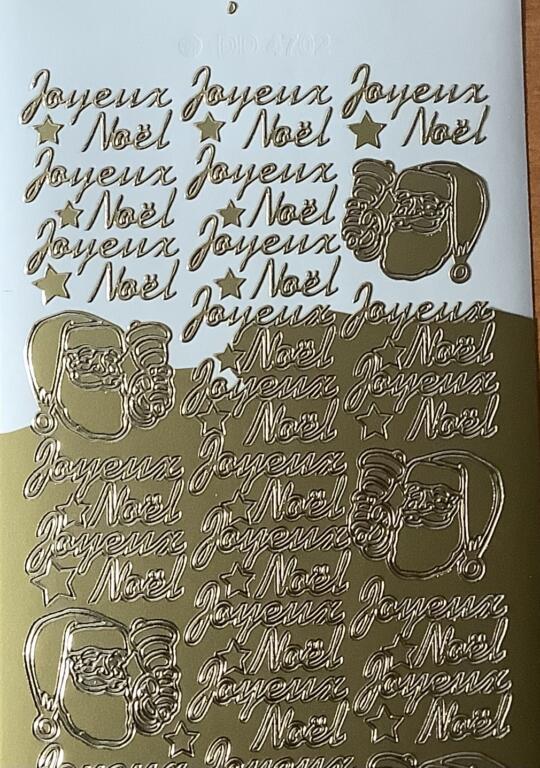 D
DD 4702
Joyeux Joyeux Joyeux
Noël Noël Noël
Joyeux Joyeux
Noël Noël
Joyeux Joyeux
Noël Noël
Joyeux Joyeux
Noël Noël
Joyeux Joyeux
Noël Noël
Joyeux Joyeux
Noël Noël
Joyeux Joyeux
Noël Noël
Joyeux Joyeux
Noël Noël
Joyeux Joyeux
Noël Noël